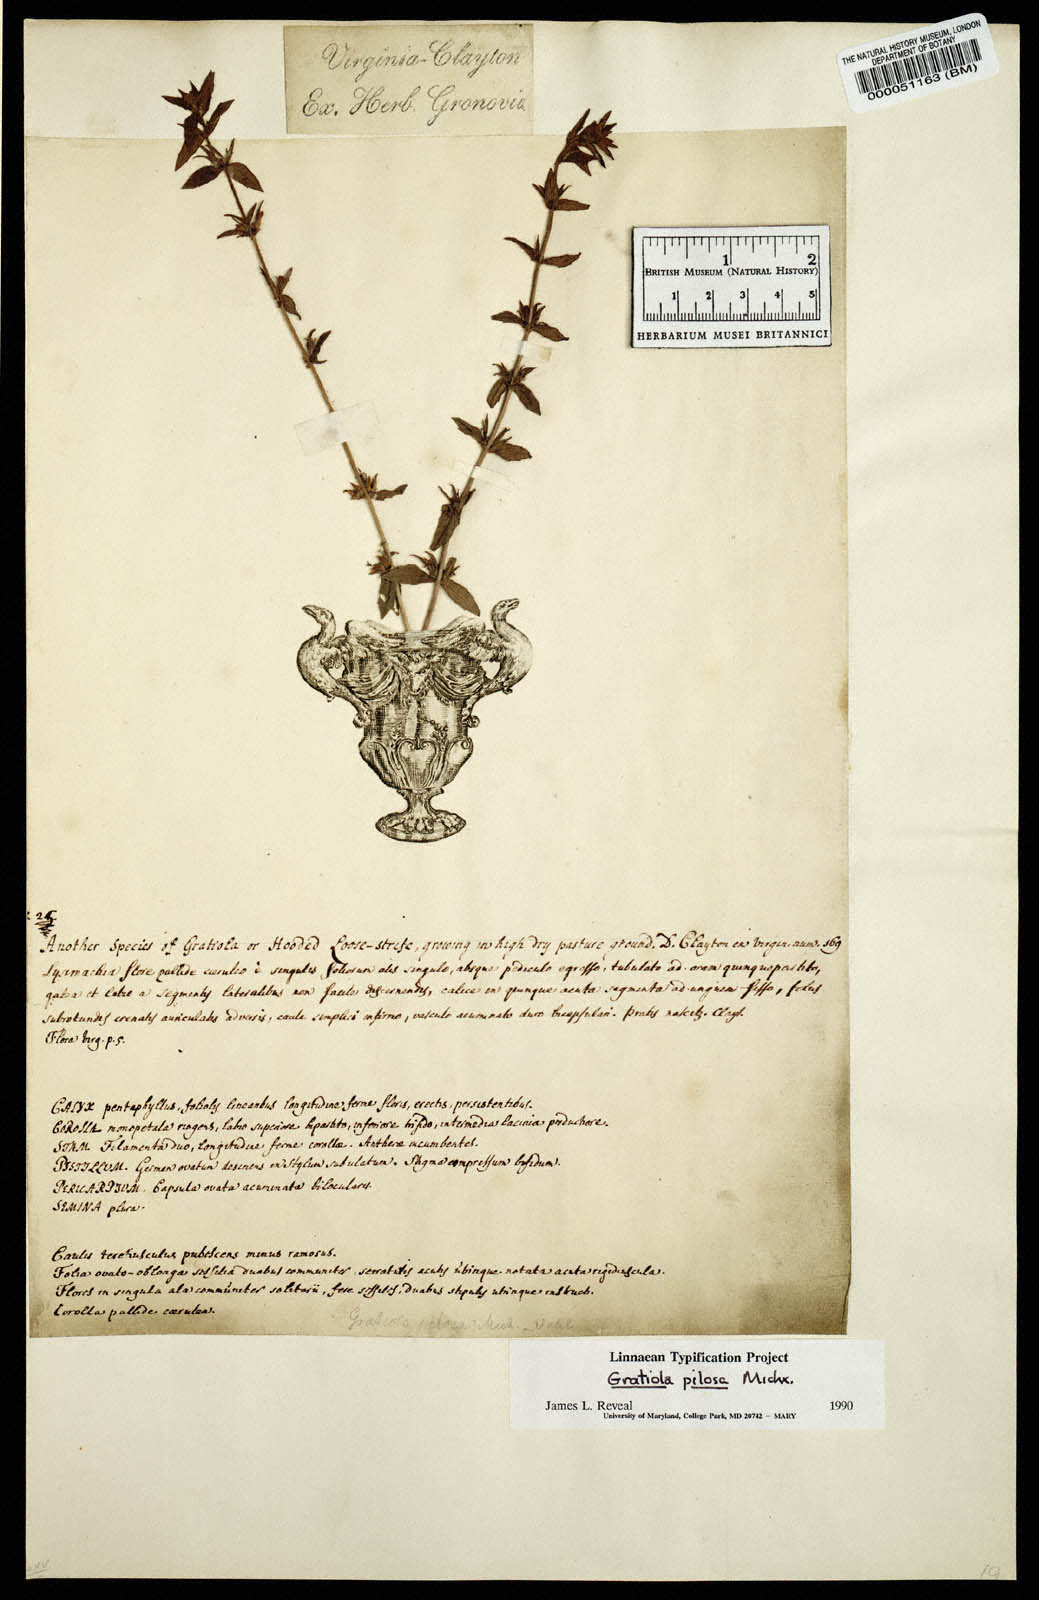 Virginia-Clayton
Ex. Herb. Gronovia
THE NATURAL HISTORY MUSEUM, LONDON
DEPARTMENT OF BOTANY
000051163 (BM)
1 2
BRITISH MUSEUM (NATURAL HISTORY)
1 2 3 4 5
HERBARIUM MUSEI BRITANNICI
Another Species of Gratiola or Hooded Loose-strife, growing in high dry pasture ground. D. Clayton ex Virgin. num. 169
Lysimachia flore pallide caeruleo è singulis foliorum alis singulo, absque pediculo egresso, tubulato ad oram quinquepartito,
galea et labro a segmentis lateralibus non facile discernendis, calice in quinque acuta segmenta ad unguem fisso, foliis
subrotundis crenatis auriculatis adversis, caule simplici infirmo, vasculo acuminato duro bicapsulari. Pratis nascitr. Clayt.
Flora virg. p. 5.
CALYX pentaphyllus, foliolis linearibus longitudine ferme floris, erectis, persistentibus.
COROLLA monopetala ringens, labio superiore bipartito, inferiore trifido, intermedia lacinia productiore.
STAM. Filamenta duo, longitudine ferme corollae. Antherae incumbentes.
PISTILLUM. Germen ovatum desinens in stylum subulatum. Stigma compressum bifidum.
PERICARPIUM. Capsula ovata acuminata bilocularis.
SEMINA plura.
Caulis teretiusculus pubescens minus ramosus.
Folia ovato-oblonga sessilia duabus communiter serraturis acutis utrinque notata acuta rigidiuscula.
Flores in singula ala communiter solitarii, fere sessiles, duabus stipulis utrinque instructi.
Corolla pallide caerulea.
Gratiola pilosa Mich. Vahl
Linnaean Typification Project
Gratiola pilosa Michx.
James L. Reveal 1990
University of Maryland, College Park, MD 20742 – MARY
19